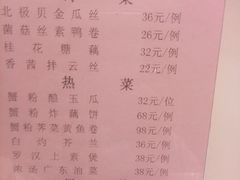 菜
北极贝金瓜丝 36元/例
菌菇丝素鸭卷 26元/例
桂花糖藕 32元/例
香茜拌云丝 22元/例
热菜
蟹粉酿玉瓜 32元/位
蟹粉炸藕饼 68元/例
蟹粉荠菜黄鱼卷 98元/例
白灼芥兰 36元/例
罗汉上素煲 38元/例
浓汤广东油菜 38元/例